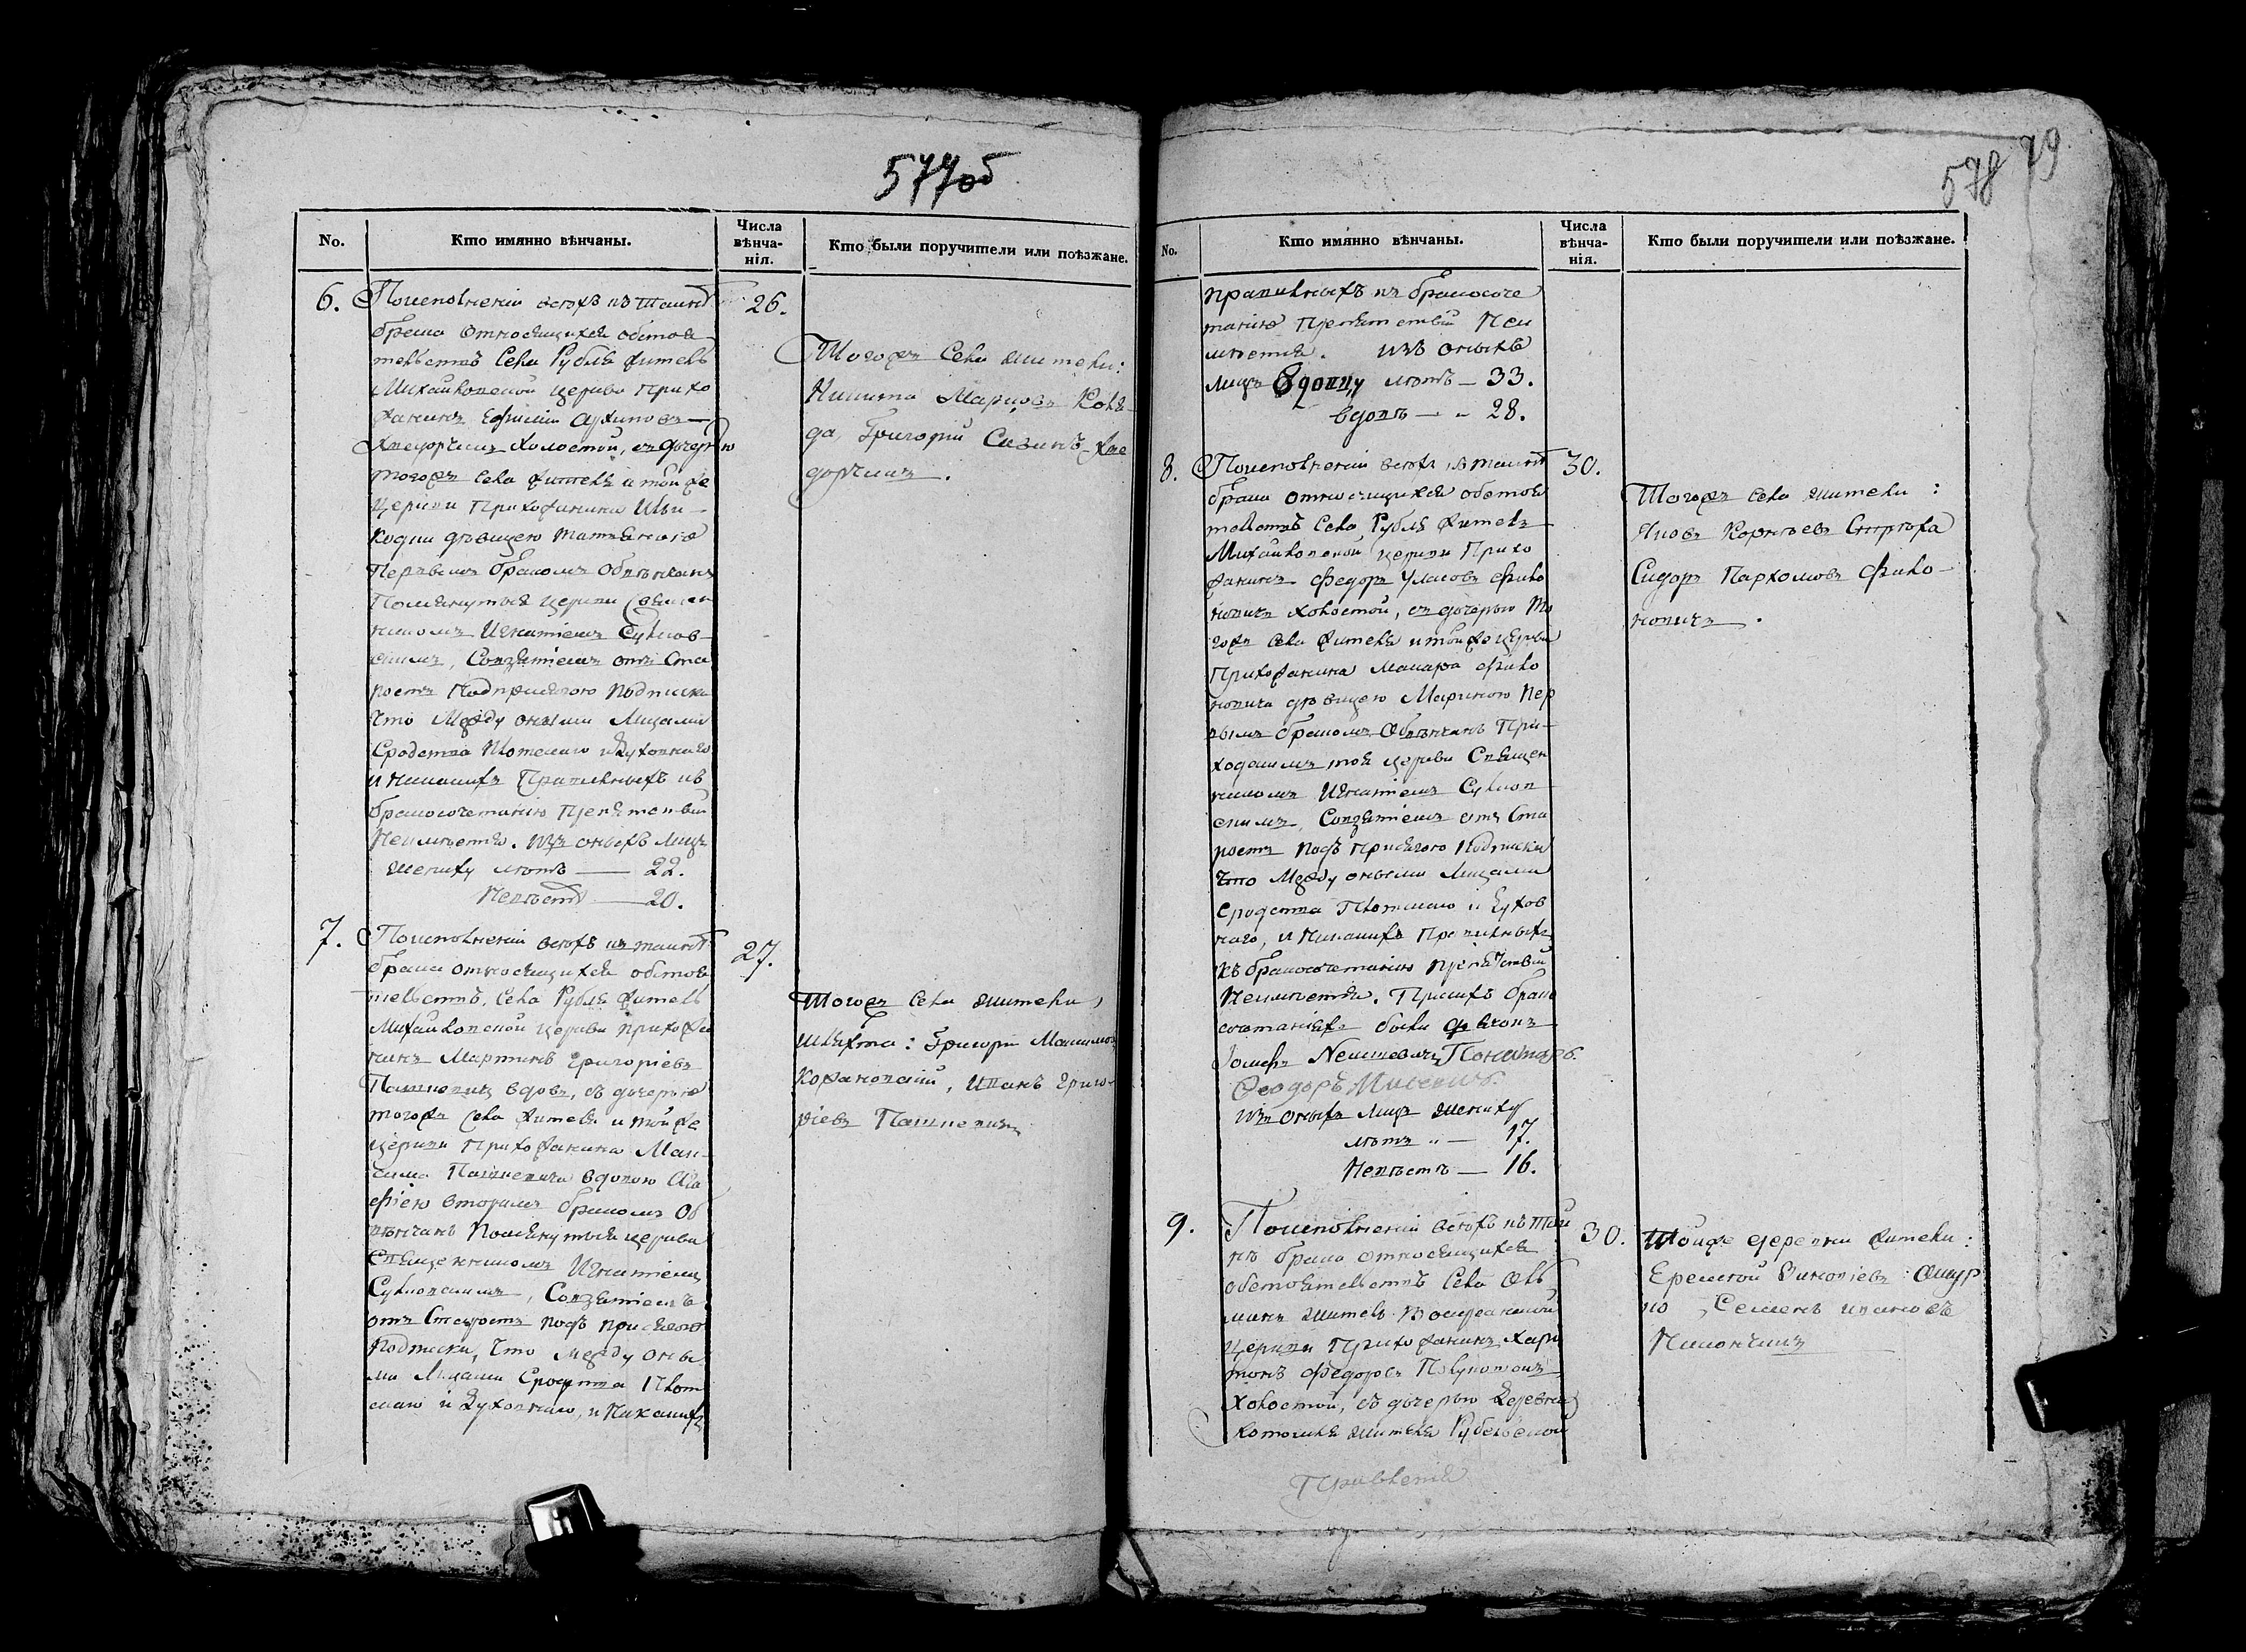 577об
No.
Кто имянно вѣнчаны.
Числа
вѣнча-
нія.
Кто были поручители или поѣзжане.
6.
Поисполненіи всѣхъ къ таинст
брака относящихся обстоя
тельствъ Села Рубля житель
Михайловской церкви прихо
жанинъ Ефимій Архиповъ
холостой, съ дочерью
тогожъ Села жителя и тойже
церкви прихожанина
дѣвицею Татіаною
Первымъ бракомъ Обвѣнчанъ
Помянутыя церкви Священ
никомъ Игнатіемъ Сулков
скимъ, Совзятіемъ отъ Ста
ростъ Подприсягою Подписки
Что Между оными Лицами
Сродства Плотскаго и Духовнаго
и никакихъ Правильныхъ къ
бракосочетанію Препятствій
Неимѣется. Изъ оныхъ Лицъ
жениху лѣтъ — 22.
Невѣстѣ — 20.
26.
Тогожъ Села жители:
Никита Марковъ Коля
да, Григорій Савинъ Хве
дорчикъ.
7.
Поисполненіи всѣхъ къ таинст
брака относящихся обстоя
тельствъ, Села Рубля житель
Михайловской церкви прихожа
нинъ Мартинъ Григоріевъ
Пашкевичъ вдовъ, съ дочерью
тогожъ Села жителя и тойже
церкви Прихожанина Мак
сима Пашкевича вдовою Ага
фіею вторымъ бракомъ Об
вѣнчанъ Помянутыя церкви
Священникомъ Игнатіемъ
Сулковскимъ, Совзятіемъ
отъ Старостъ подъ присягою
Подписки, Что между оны
ми Лицами Сродства Плот
скаго и Духовнаго, и Никакихъ
27.
Тогожъ Села жители,
шляхта: Григорій Максимовъ
Корановскій, Иванъ Григо
ріевъ Пашкевичъ
578 79
No.
Кто имянно вѣнчаны.
Числа
вѣнча-
нія.
Кто были поручители или поѣзжане.
правильныхъ къ бракосоче
танію Препятствій Неи
мѣется. изъ оныхъ
лицъ Вдовцу лѣтъ — 33.
вдовѣ — „ 28.
8.
Поисполненіи всѣхъ къ таинст
брака относящихся обстоя
тельствъ Села Рубля житель
Михайловской церкви Прихо
жанинъ Федоръ Уласовъ Фило
новичъ холостой, съ дочерью То
гожъ Села жителя и тойже церкви
Прихожанина Макара Фило
новича дѣвицею Мариною Пер
вымъ бракомъ Обвѣнчанъ При-
ходскимъ тоя церкви Священ
никомъ Игнатіемъ Сулков
скимъ, Совзятіемъ отъ Ста
ростъ Подъ Присягою Подписки
Что Между оными Лицами
Сродства Плотскаго и Духов
наго, и Никакихъ Правильныхъ
къ бракосочетанію препятствій
Неимѣется. Присихъ брако
сочетаніяхъ были дьяконъ
Іосифъ Пономаръ
Феодоръ
Изъ оныхъ Лицъ жениху
лѣтъ „ — 17.
Невѣстѣ — 16.
30.
Тогожъ Села жители:
Яковъ Корнѣевъ
Сидоръ Пархомовъ Фило-
новичъ.
9.
Поисполненіи всѣхъ къ Таи
нъ брака относящихся
обстоятельствъ Села Оль
манъ житель Воскресенской
Церкви Прихожанинъ Хари
тонъ Федоровъ
Холостой, съ дочерью Деревни
жителя Рубельской
30.
Тойже деревни жители:
Семенъ Ивановъ